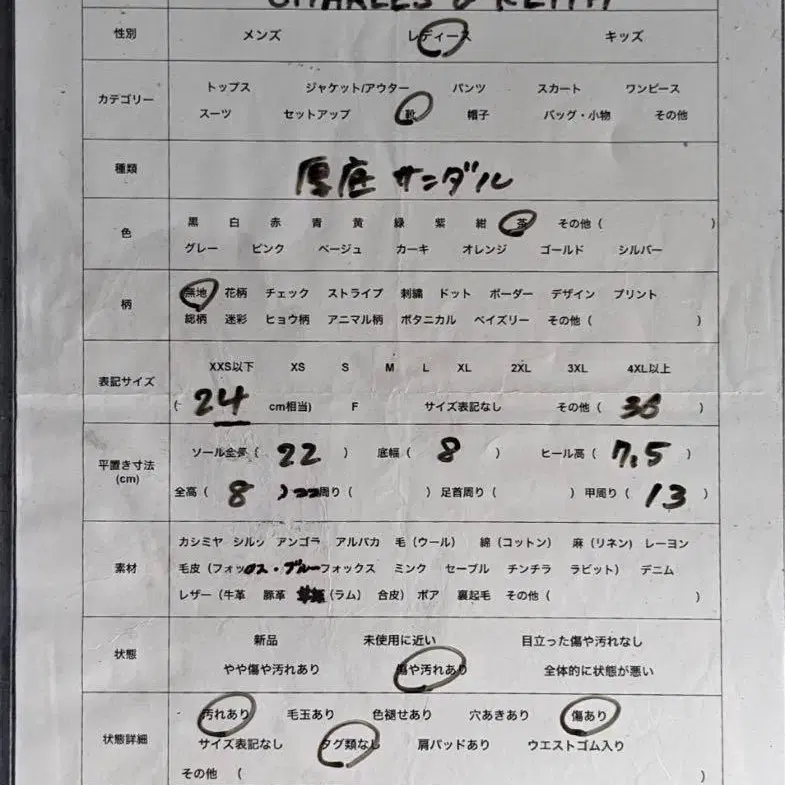 CHARLES & KEITH
性別 メンズ レディース キッズ
トップス ジャケット/アウター パンツ スカート ワンピース
カテゴリー
スーツ セットアップ 靴 帽子 バッグ・小物 その他
種類 厚底サンダル
黒 白 赤 青 黄 緑 紫 紺 茶 その他 ( )
色
グレー ピンク ベージュ カーキ オレンジ ゴールド シルバー
無地 花柄 チェック ストライプ 刺繍 ドット ボーダー デザイン プリント
柄
総柄 迷彩 ヒョウ柄 アニマル柄 ボタニカル ペイズリー その他 ( )
XXS以下 XS S M L XL 2XL 3XL 4XL以上
表記サイズ
( 24 cm相当) F サイズ表記なし その他 ( 36 )
ソール全長 ( 22 ) 底幅 ( 8 ) ヒール高 ( 7.5 )
平置き寸法
(cm)
全高 ( 8 ) 周り ( ) 足首周り ( ) 甲周り ( 13 )
カシミヤ シルク アンゴラ アルパカ 毛 (ウール) 綿 (コットン) 麻 (リネン) レーヨン
素材
毛皮 (フォックス・ブルーフォックス ミンク セーブル チンチラ ラビット) デニム
レザー (牛革 豚革 (ラム) 合皮) ボア 裏起毛 その他 ( )
新品 未使用に近い 目立った傷や汚れなし
状態
やや傷や汚れあり 傷や汚れあり 全体的に状態が悪い
汚れあり 毛玉あり 色褪せあり 穴あきあり 傷あり
状態詳細
サイズ表記なし タグ類なし 肩パッドあり ウエストゴム入り
その他 ( )